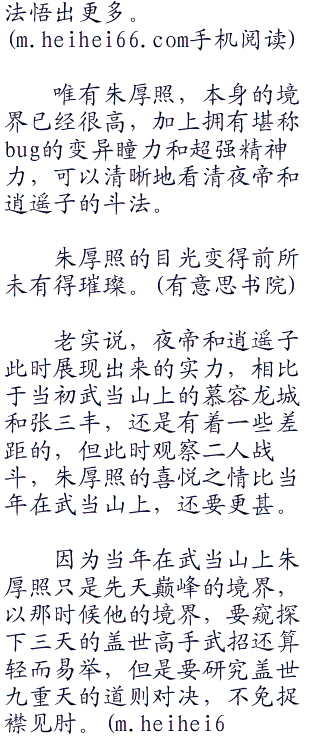 法悟出更多。
(m.heihei66.com手机阅读)
唯有朱厚照，本身的境
界已经很高，加上拥有堪称
bug的变异瞳力和超强精神
力，可以清晰地看清夜帝和
逍遥子的斗法。
朱厚照的目光变得前所
未有得璀璨。(有意思书院)
老实说，夜帝和逍遥子
此时展现出来的实力，相比
于当初武当山上的慕容龙城
和张三丰，还是有着一些差
距的，但此时观察二人战
斗，朱厚照的喜悦之情比当
年在武当山上，还要更甚。
因为当年在武当山上朱
厚照只是先天巅峰的境界，
以那时候他的境界，要窥探
下三天的盖世高手武招还算
轻而易举，但是要研究盖世
九重天的道则对决，不免捉
襟见肘。(m.heihei6